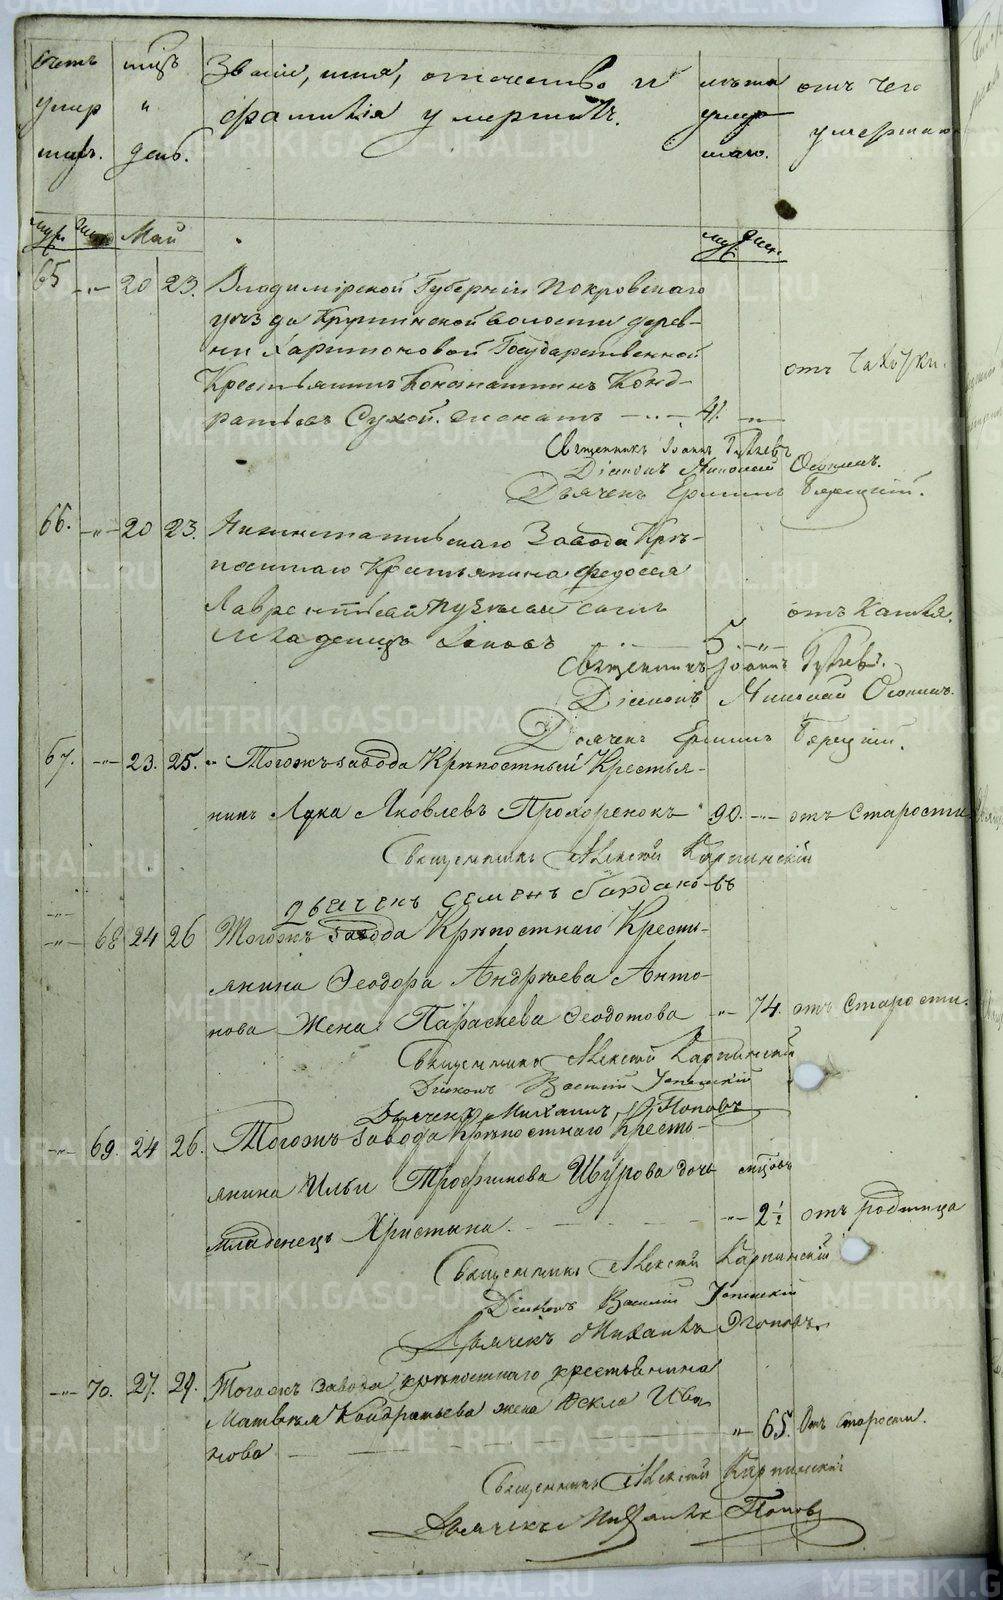 счетъ мцъ Званіе, имя, отчество и лѣта отъ чего
умер и фамилія умершихъ. умер умерли
шихъ. день. шаго.
муж. жен. Май муж. жен.
65 -"- 20 23. Владимірской Губерніи Покровскаго
уезда Крутинской волости дерев-
ни Харитоновой Государственной
отъ Чахотки.
Крестьянинъ Константинъ Конд-
ратьевъ Сухой. -"- 41 -"-
Священникъ Іоаннъ
Діаконъ Николай Осонинъ.
Дьячекъ Ермилъ
66. -"- 20 23. Нижнетагильскаго Завода Крѣ-
постнаго Крестьянина Федосея
Лаврентьева сынъ отъ Кашля.
Младенецъ Іаковъ 5. -"-
Священникъ Іоаннъ
Діаконъ Николай Осонинъ.
Дьячекъ Ермилъ
67. -"- 23. 25. Тогожъ завода Крѣпостный Крестья-
нинъ Лука Яковлевъ Прохоренокъ 90. -"- отъ Старости
Священникъ Алексій Карпинскій
Дьячекъ Семенъ Бурдаковъ
-"- 68 24 26 Тогожъ завода Крѣпостнаго Кресть-
янина Ѳеодора Андрѣева Анто-
нова Жена Параскева Ѳеодотова -"- 74. отъ Старости.
Священникъ Алексій Карпинскій
Діаконъ Василій
Дьячекъ Михаилъ Поповъ
-"- 69. 24 26. Тогожъ завода Крѣпостнаго Кресть-
янина Ильи Трофимова Шурова дочь мцовъ
младенецъ Христина. -"- 2½ отъ родимца
Священникъ Алексій Карпинскій
Діаконъ Василій
Дьячекъ Михаилъ Поповъ.
-"- 70. 27. 29. Тогожъ завода крѣпостнаго крестьянина
Матвѣя Кондратьева жена Ѳекла Ива
нова -"- 65. Отъ старости.
Священникъ Алексій Карпинскій
Дьячекъ Михаилъ Поповъ
METRIKI.GASO-URAL.RU